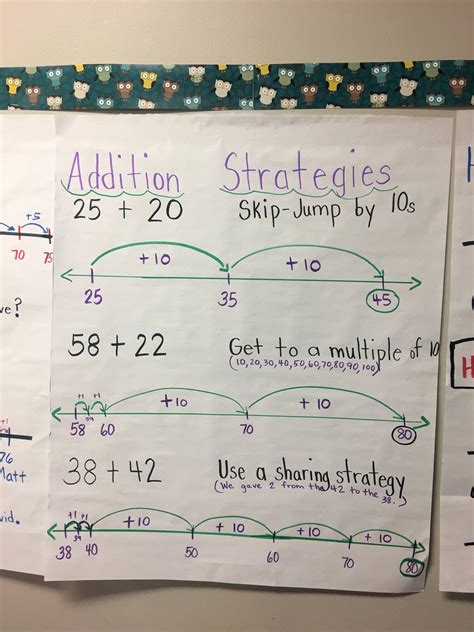 Addition Strategies
25 + 20 Skip-Jump by 10s
+10 +10
25 35 45
58 + 22 Get to a multiple of 10
(10,20,30,40,50,60,70,80,90,100)
+1 +1 +10 +10
58 59 60 70 80
38 + 42 Use a sharing strategy
(We gave 2 from the 42 to the 38.)
+1 +1 +10 +10 +10 +10
38 39 40 50 60 70 80
+5
70 75
ve?
76
Matt
vid.
H
H